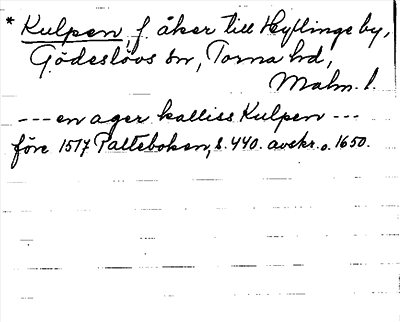 * Kulpen, f. åker till Heflinge by,
Gödeslövs sn, Torna hd,
Malm. l.
--- en ager kalliss Kulpen ---
före 1517 Palteboken, s. 440. avskr. o. 1650.